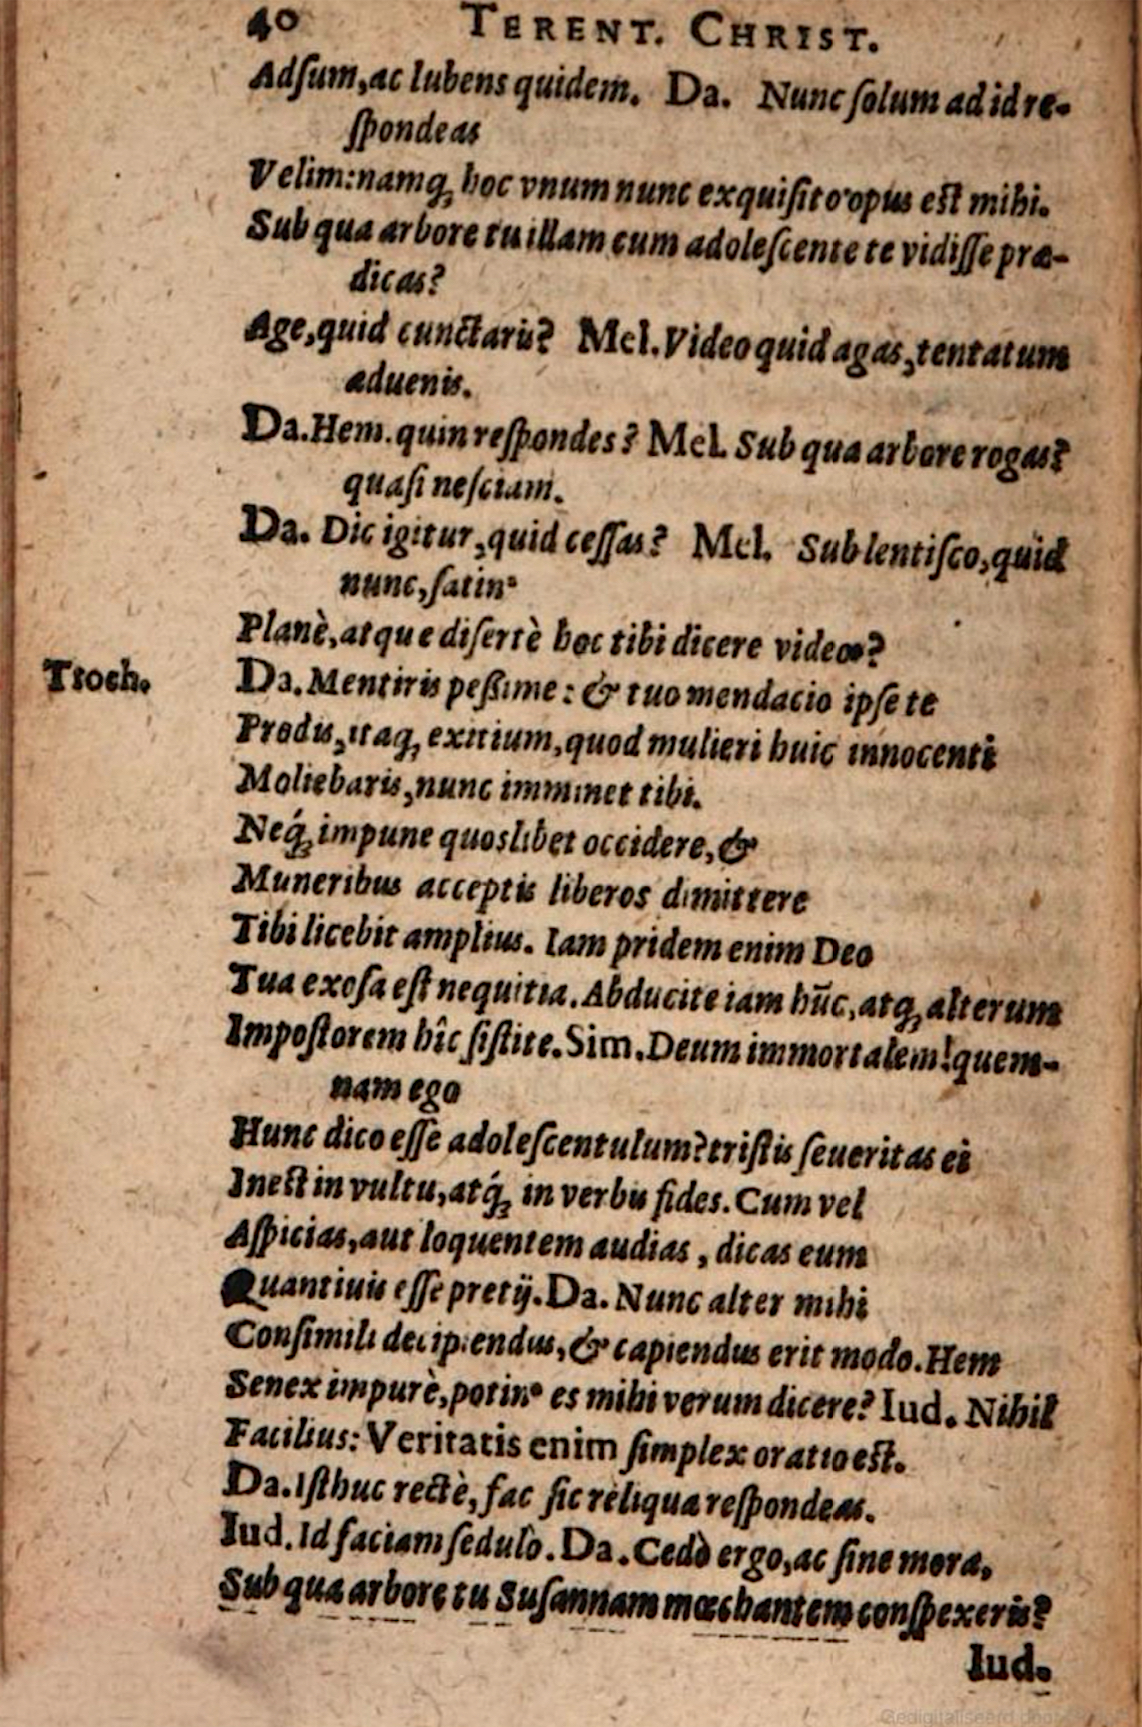 40 TERENT. CHRIST.
Adſum,ac lubens quidem. Da. Nunc ſolum ad id re-
ſpondeas
Velim:namq́; hoc vnum nunc exquiſito opus eſt mihi.
Sub qua arbore tu illam cum adoleſcente te vidiſſe præ-
dicas?
Age,quid cunctaris? Mel. Video quid agas,tentatum
aduenis.
Da.Hem.quin reſpondes? Mel. Sub qua arbore rogas?
quaſi neſciam.
Da. Dic igitur,quid ceſſas? Mel. Sub lentiſco,quid
nunc,ſatin'
Planè,atque diſertè hoc tibi dicere videor?
Troch.
Da.Mentiris peßime: & tuo mendacio ipſe te
Prodis,itaq; exitium,quod mulieri huic innocenti
Moliebaris,nunc imminet tibi.
Neq́; impune quoslibet occidere,&
Muneribus acceptis liberos dimittere
Tibi licebit amplius. Iam pridem enim Deo
Tua exoſa eſt nequitia.Abducite iam hũc,atq; alterum
Impoſtorem hîc ſiſtite.Sim.Deum immortalem!quem-
nam ego
Hunc dico eſſe adoleſcentulum?triſtis ſeueritas ei
Ineſt in vultu,atq́; in verbis fides.Cum vel
Aſpicias,aut loquentem audias , dicas eum
Quantiuis eſſe pretij.Da. Nunc alter mihi
Conſimili decipiendus,& capiendus erit modo.Hem
Senex impurè,potin' es mihi verum dicere? Iud. Nihil
Facilius: Veritatis enim ſimplex oratio eſt.
Da.Iſthuc rectè,fac ſic reliqua reſpondeas.
Iud.Id faciam ſedulò.Da.Cedò ergo,ac ſine mora,
Sub qua arbore tu Suſannam mœchantem conſpexeris?
Iud.
Gedigitaliseerd door